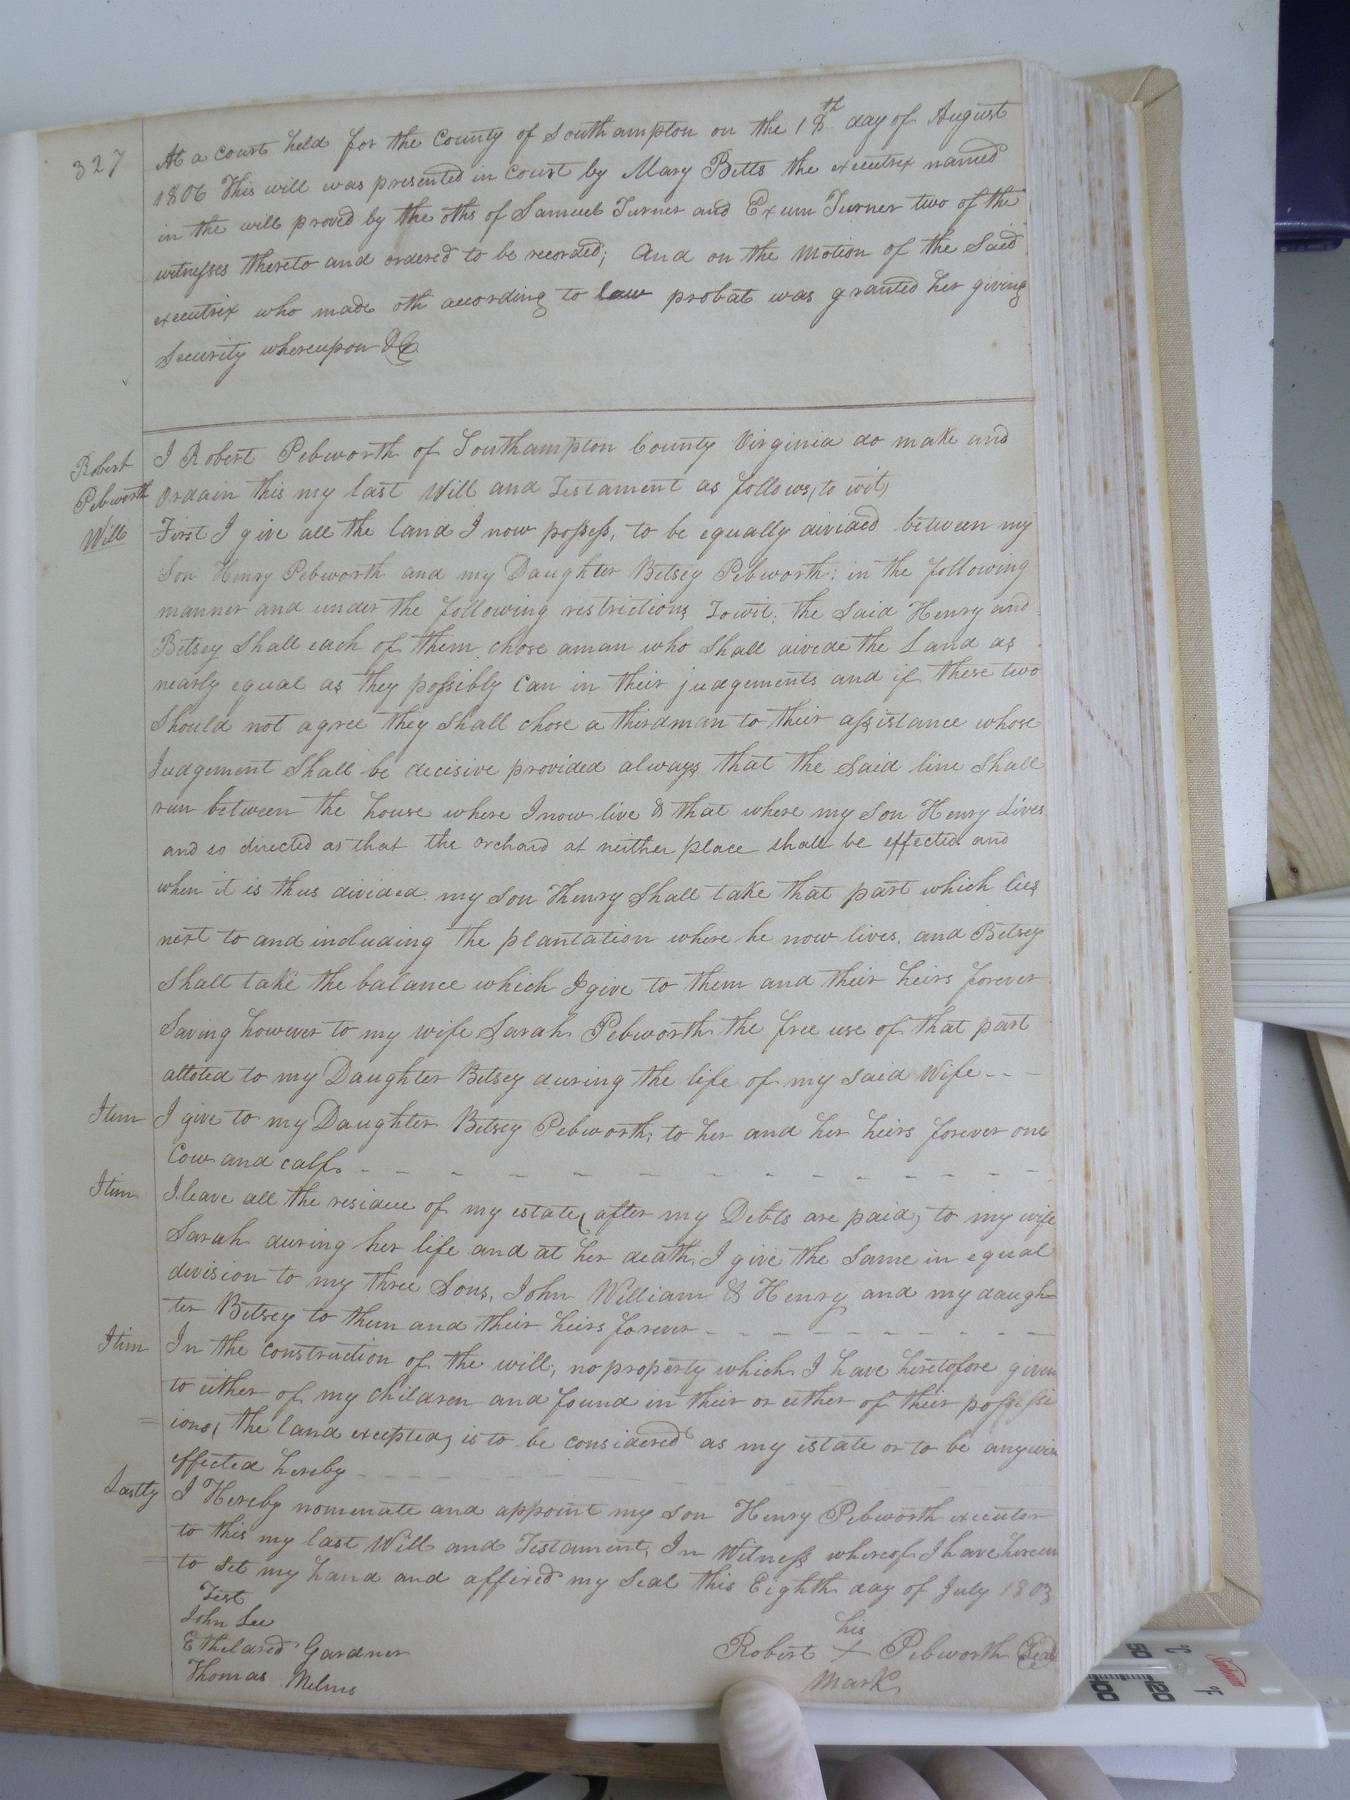 327
At a court held for the County of Southampton on the 18th day of August
1806 This will was presented in Court by Mary Betts the executrix named
in the will proved by the oths of Samuel Turner and Exum Turner two of the
witnesses thereto and ordered to be recorded; And on the Motion of the Said
executrix who made oth according to law probat was granted her giving
Security whereupon &C
Robert
Pebworth
Will
I Robert Pebworth of Southampton County Virginia do make and
Ordain this my last Will and Testament as follows, to wit,
First I give all the land I now possess, to be equally divided between my
Son Henry Pebworth and my Daughter Betsey Pebworth; in the following
manner and under the following restrictions, Towit; the Said Henry and
Betsey Shall each of them chose a man who Shall divide the Land as
nearly equal as they possibly Can in their judgements and if these two
Should not agree they Shall chose a thirdman to their assistance whose
Judgement Shall be decisive provided always that the Said line Shall
run between the house where I now live & that where my Son Henry Lives
and so directed as that the orchard at neither place shall be effected and
when it is thus divided my Son Henry Shall take that part which lies
next to and including the plantation where he now lives, and Betsey
Shall take the balance which I give to them and their heirs forever
Saving however to my wife Sarah Pebworth the free use of that part
alloted to my Daughter Betsey during the life of my Said Wife - - -
Item I give to my Daughter Betsey Pebworth, to her and her heirs forever one
Cow and calf - - - - - - - - - - - -
Item I leave all the residue of my estate, (after my Debts are paid) to my wife
Sarah during her life and at her death, I give the Same in equal
division to my three Sons, John William & Henry and my daugh-
ter Betsey to them and their heirs forever - - - - - - - - - -
Item In the Construction of the will, no property which I have heretofore given
to either of my children and found in their or either of their possessi
=ions, (the land excepted) is to be considered as my estate or to be anywise
effected hereby - - - - - - - -
Lastly I Hereby nominate and appoint my Son Henry Pebworth executor
to this my last Will and Testament, In Witness whereof I have hereun
=to Set my hand and affixed my Seal this Eighth day of July 1803
Test
John Lee
Etheldred Gardner
Thomas Melms
his
Robert X Pebworth Seal
Mark